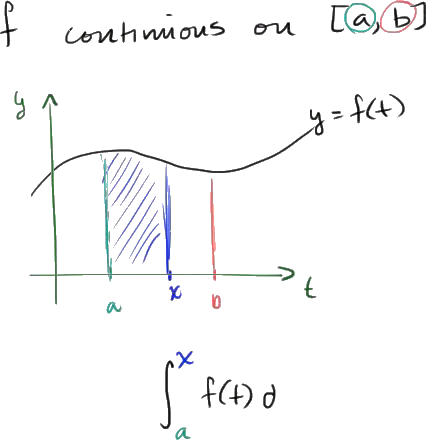 f continuous on [a, b]
y
y = f(t)
a
x
b
t
∫ₐˣ f(t) d